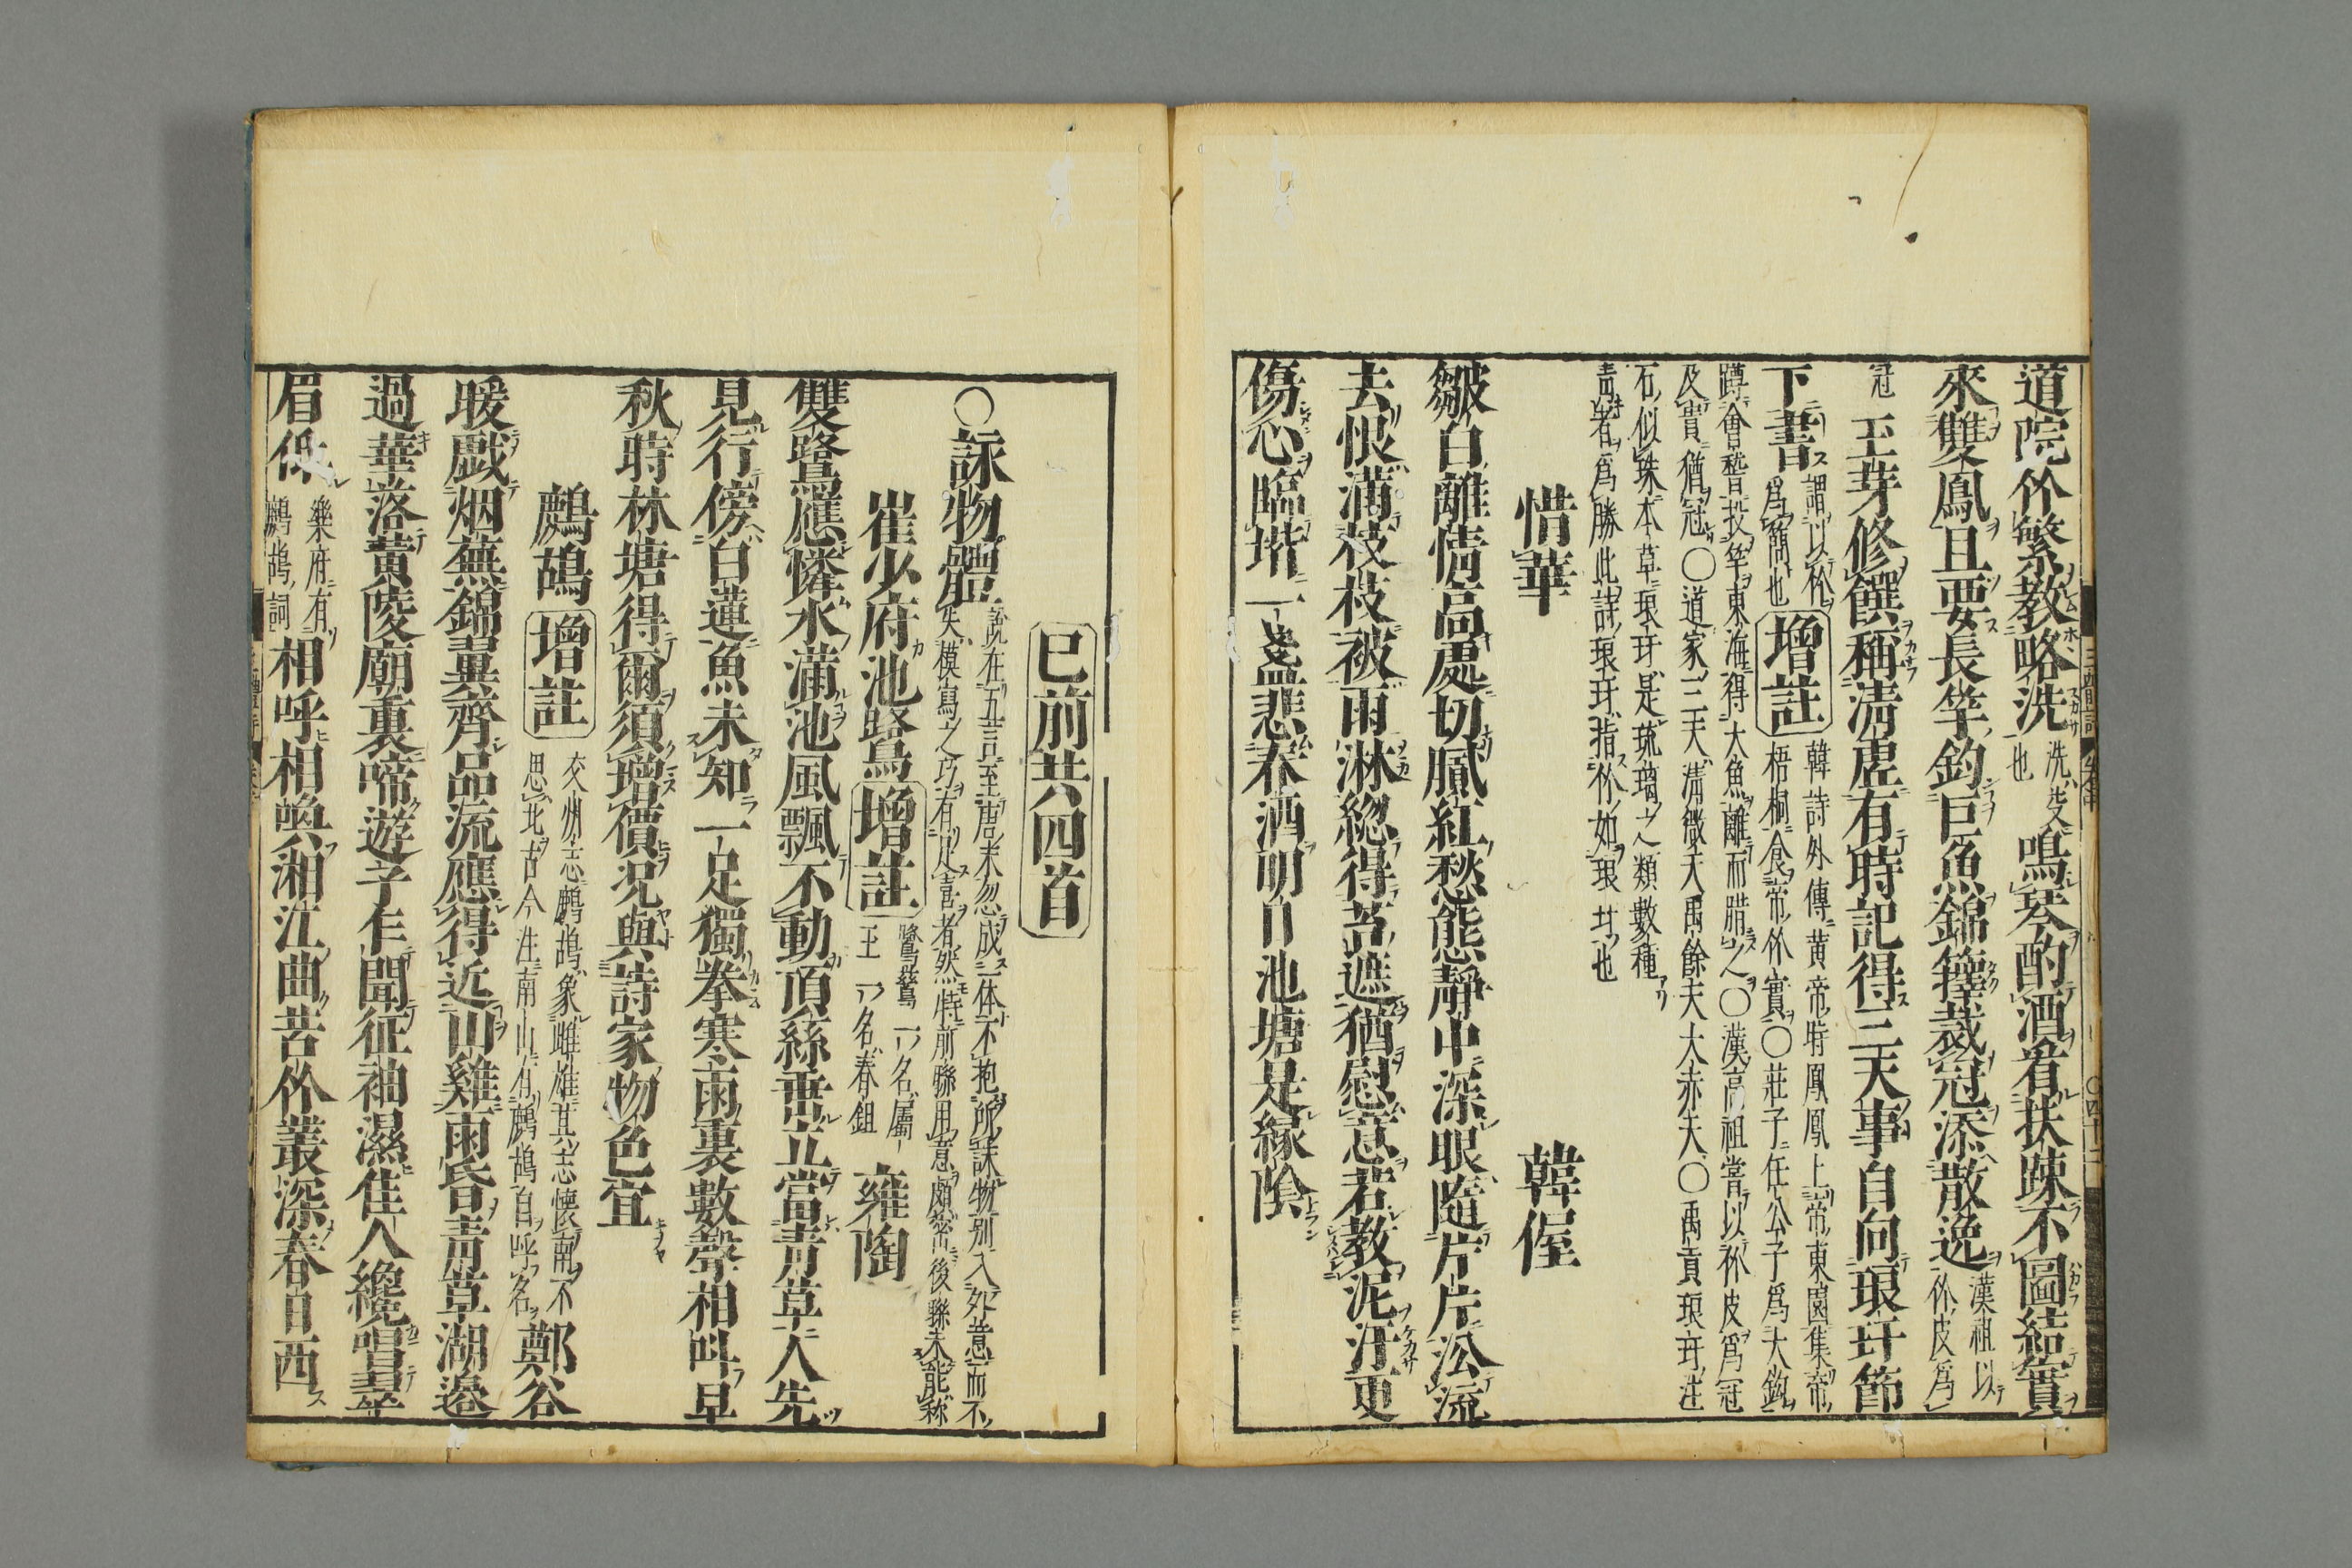 道院竹繁教略洗
洗、芟
也
鳴琴酌酒看扶疎不圖結實
來雙鳳且要長竿釣巨魚錦籜裁冠添散逸
漢祖以
竹皮爲
冠
玉芽修饌稱清虛有時記得三天事自向琅玕節
下書
謂以竹
爲簡也
增註
韓詩外傳黃帝時鳳凰上帝東園集帝
梧桐食帝竹實○莊子任公子爲大鉤
蹲會稽投竿東海得大魚離而腊之○漢高祖嘗以竹皮爲冠
及貴猶冠○道家三天清微天禹餘天大赤天○禹貢琅玕注
石似珠本草琅玕是琉璃之類數種
青者爲勝此詩琅玕指竹如琅玕也
惜華
韓偓
皺白離情高處切膩紅愁態靜中深眼隨片片沿流
去恨滿枝枝被雨淋總得苔遮猶慰意若教泥汙更
傷心臨堦一盞悲春酒明日池塘是緑陰
已前共四首
○詠物體
說在五言至唐末忽成一体不抱所詠物別入外意而不
失模寫之巧有足喜者然特前聯用意頗密後聯未能稱
崔少府池鷺
增註
鷺鷥一名屬
玉一名舂鉏
雍陶
雙鷺應憐水滿池風飄不動頂絲垂立當青草人先
見行傍白蓮魚未知一足獨拳寒雨裏數聲相呌早
秋時林塘得爾須增價況與詩家物色宜
鷓鴣
增註
交州志鷓鴣象雌雄其志懷南不
思北古今注南山有鷓鴣自呼名
鄭谷
暖戲烟蕪錦翼齊品流應得近山雞雨昏青草湖邊
過華落黃陵廟裏啼遊子乍聞征袖濕佳人纔唱翠
眉低
樂府有
鷓鴣詞
相呼相喚湘江曲苦竹叢深春日西